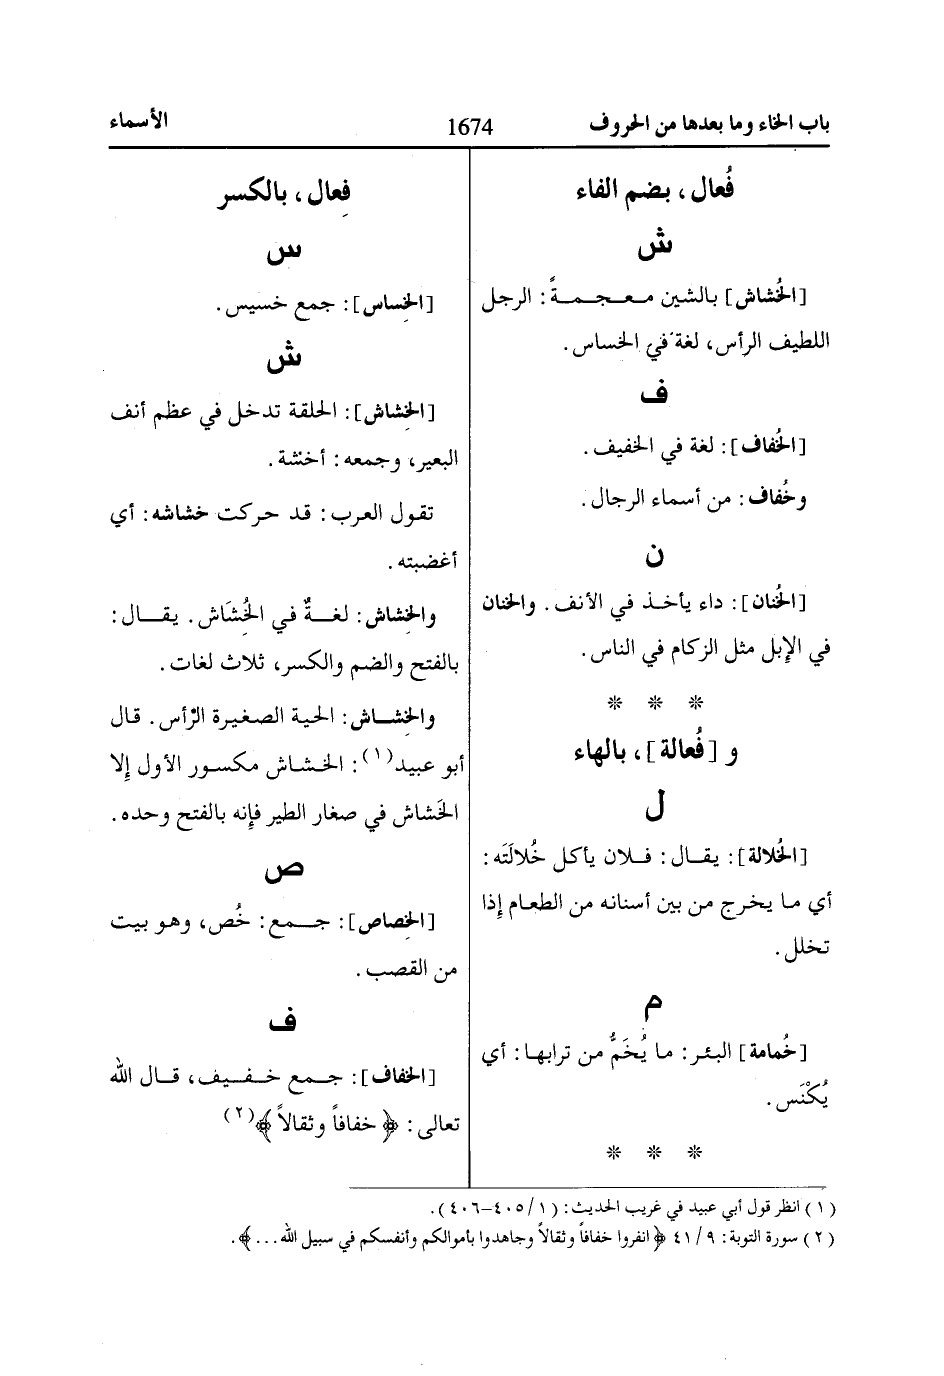 باب الخاء وما بعدها من الحروف 1674 الأسماء
فُعال، بضم الفاء
ش
[الخُشاش] بالشين معجمةً: الرجل
اللطيف الرأس، لغة في الخساس.
ف
[الخُفاف]: لغة في الخفيف.
وخُفاف: من أسماء الرجال.
ن
[الخُنان]: داء يأخذ في الأنف. والخنان
في الإبل مثل الزكام في الناس.
* * *
و [فُعالة]، بالهاء
ل
[الخُلالة]: يقال: فلان يأكل خُلالَتَه:
أي ما يخرج من بين أسنانه من الطعام إذا
تخلل.
م
[خُمامة] البئر: ما يُخَمُّ من ترابها: أي
يُكْنَس.
* * *
فِعال، بالكسر
س
[الخِساس]: جمع خسيس.
ش
[الخِشاش]: الحلقة تدخل في عظم أنف
البعير، وجمعه: أخشة.
تقول العرب: قد حركت خشاشه: أي
أغضبته.
والخِشاش: لغةٌ في الخُشَاش. يقال:
بالفتح والضم والكسر، ثلاث لغات.
والخِشاش: الحية الصغيرة الرأس. قال
أبو عبيد(١): الخشاش مكسور الأول إلا
الخَشاش في صغار الطير فإنه بالفتح وحده.
ص
[الخِصاص]: جمع: خُص، وهو بيت
من القصب.
ف
[الخِفاف]: جمع خفيف، قال الله
تعالى: ﴿خفافاً وثقالاً﴾(٢)
(١) انظر قول أبي عبيد في غريب الحديث: (١/٤٠٥-٤٠٦).
(٢) سورة التوبة: ٩/٤١ ﴿انفروا خفافاً وثقالاً وجاهدوا بأموالكم وأنفسكم في سبيل الله...﴾.